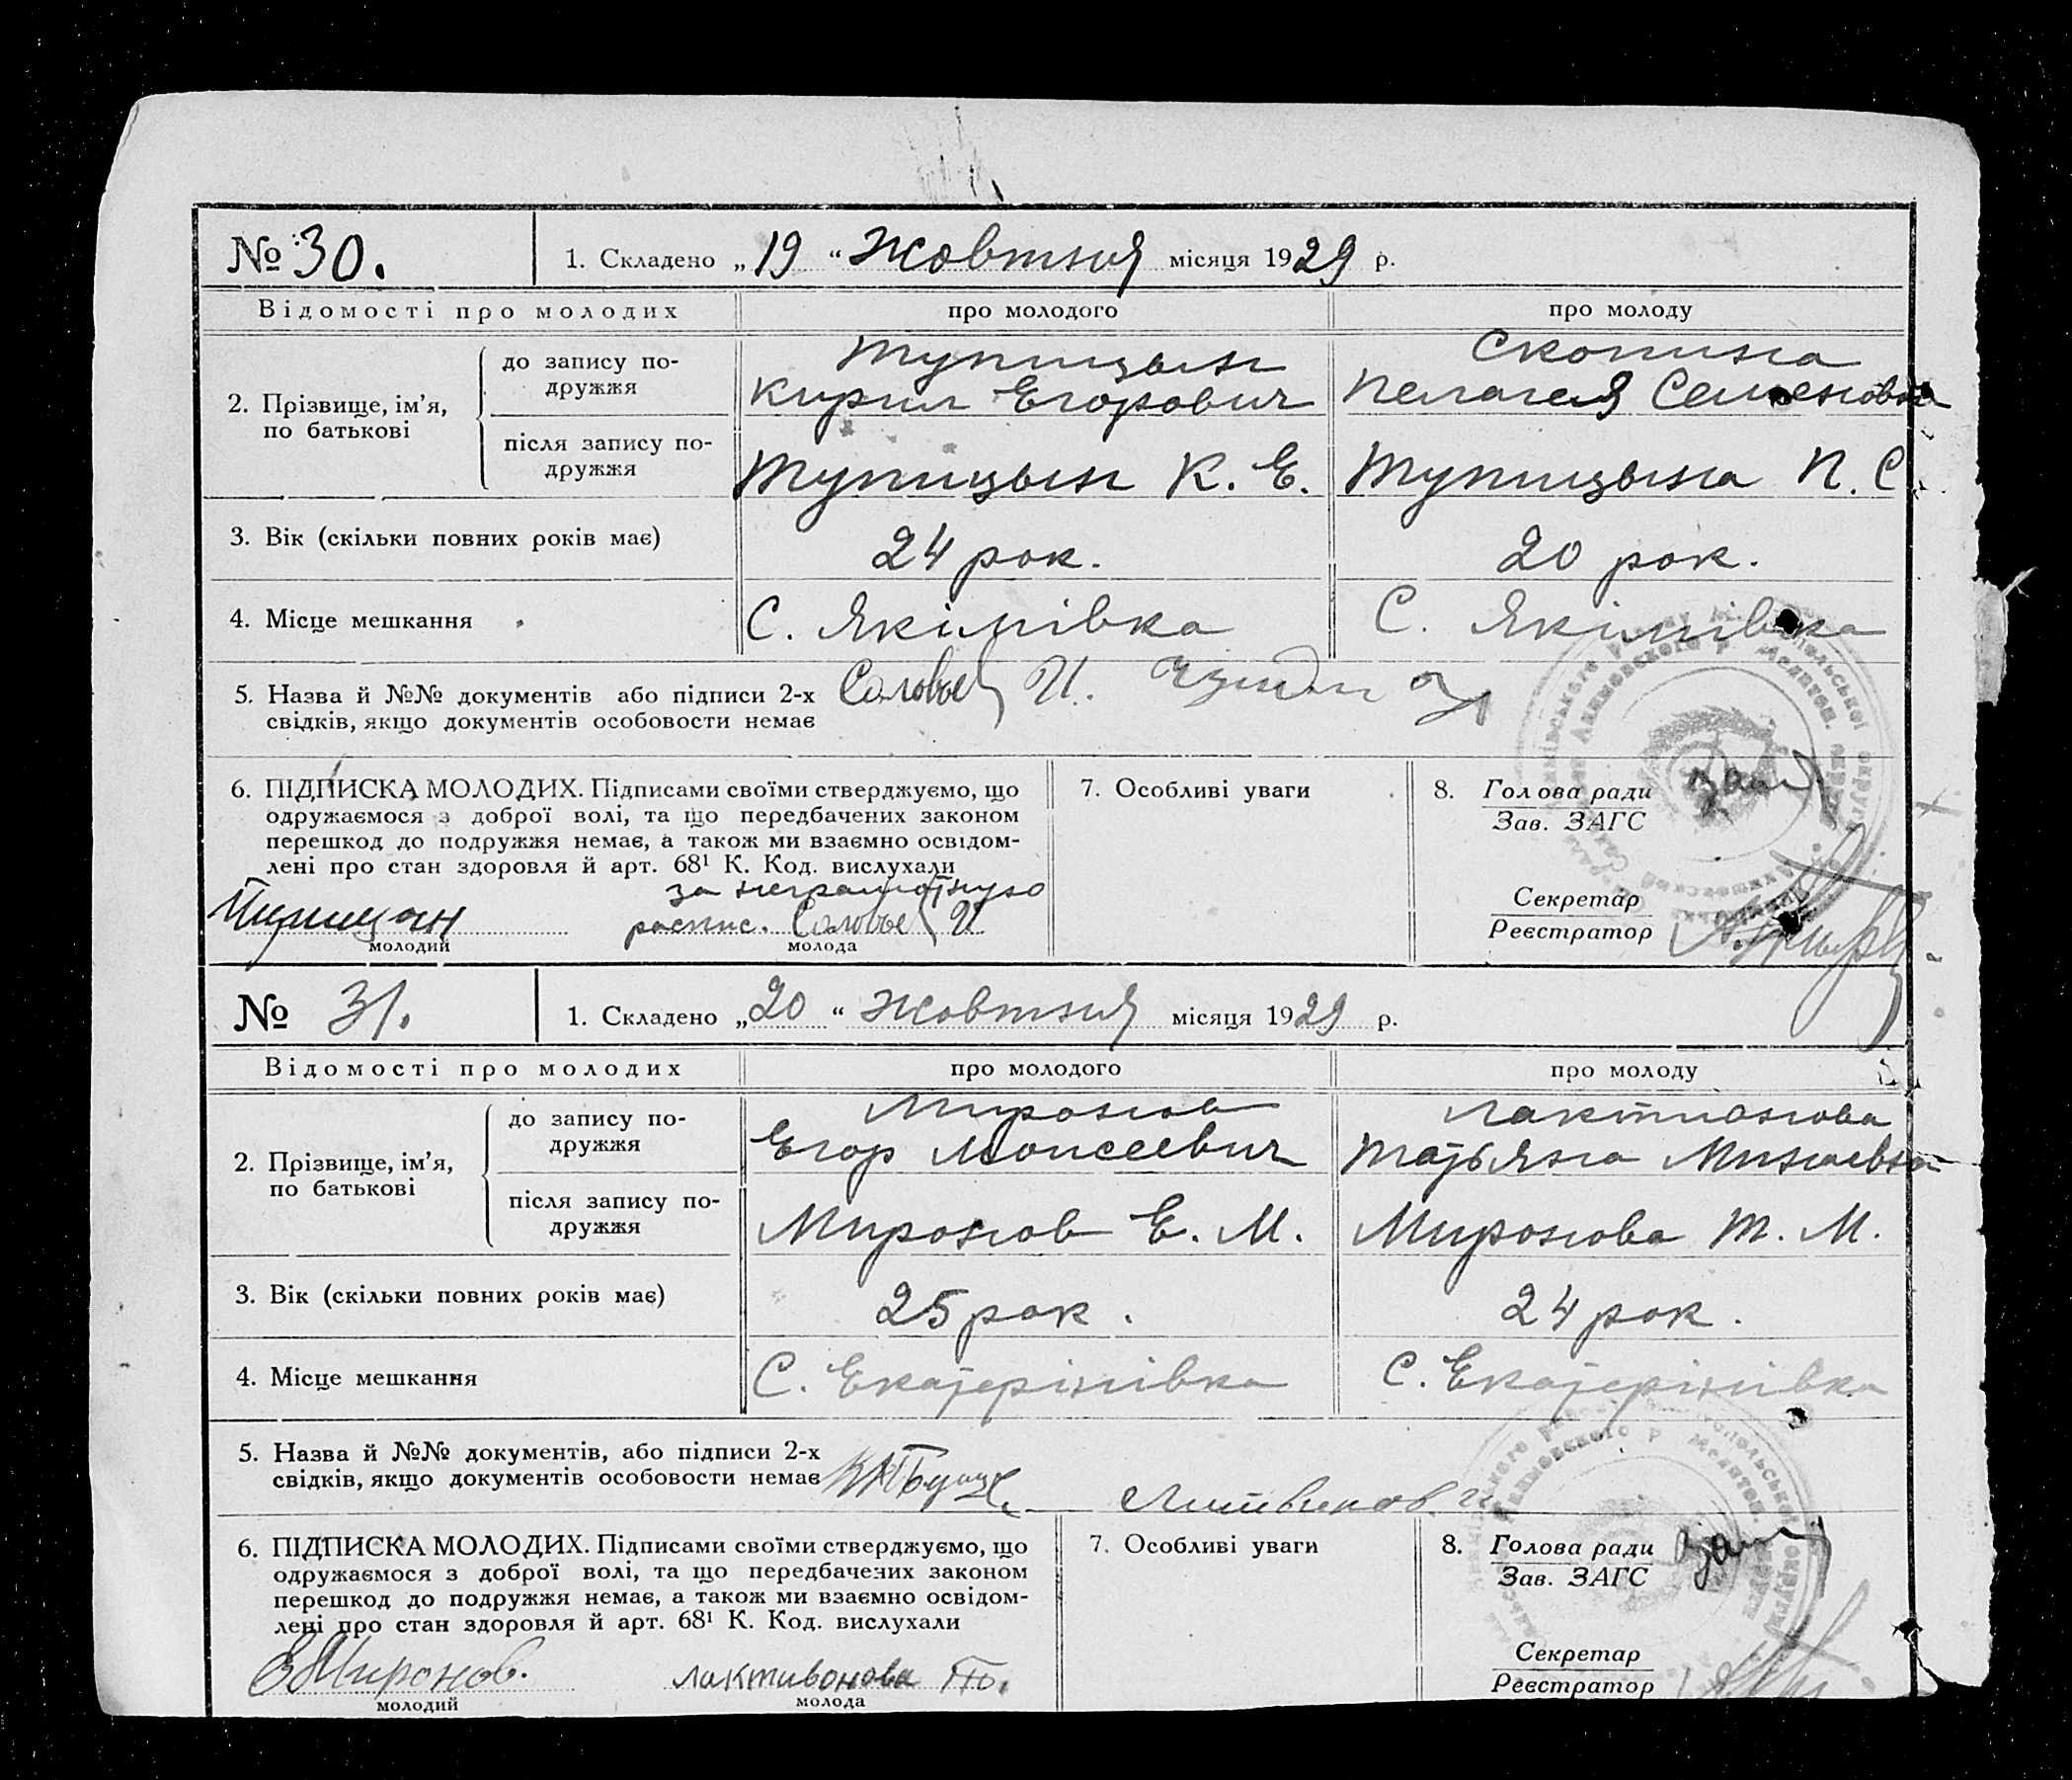 № 30.
1. Складено „19“ Жовтня місяця 1929 р.
Відомості про молодих
про молодого
про молоду
2. Прізвище, ім’я,
по батькові
до запису по-
дружжя
Тупицын
Кирил Егорович
Скопина
Пелагея Семеновна
після запису по-
дружжя
Тупицын К. Е.
Тупицына П. С.
3. Вік (скільки повних років має)
24 рок.
20 рок.
4. Місце мешкання
С. Якімівка
С. Якімівка
5. Назва й №№ документів або підписи 2-х
свідків, якщо документів особовости немає
Соловьев И.
6. ПІДПИСКА МОЛОДИХ. Підписами своїми стверджуємо, що
одружаємося з доброї волі, та що передбачених законом
перешкод до подружжя немає, а також ми взаємно освідом-
лені про стан здоровля й арт. 68¹ К. Код. вислухали
за неграмотную
распис. Соловьев И
молодий
молода
7. Особливі уваги
8. Голова ради
Зав. ЗАГС
Секретар
Реєстратор
№ 31.
1. Складено „20“ Жовтня місяця 1929 р.
Відомості про молодих
про молодого
про молоду
2. Прізвище, ім’я,
по батькові
до запису по-
дружжя
Миронов
Егор Моисеевич
Лактионова
Татьяна Минаевна
після запису по-
дружжя
Миронов Е. М.
Миронова Т. М.
3. Вік (скільки повних років має)
25 рок.
24 рок.
4. Місце мешкання
С. Екатерінівка
С. Екатерінівка
5. Назва й №№ документів, або підписи 2-х
свідків, якщо документів особовости немає
Литвинов
6. ПІДПИСКА МОЛОДИХ. Підписами своїми стверджуємо, що
одружаємося з доброї волі, та що передбачених законом
перешкод до подружжя немає, а також ми взаємно освідом-
лені про стан здоровля й арт. 68¹ К. Код. вислухали
Е Миронов.
лактивонова
молодий
молода
7. Особливі уваги
8. Голова ради
Зав. ЗАГС
Секретар
Реєстратор